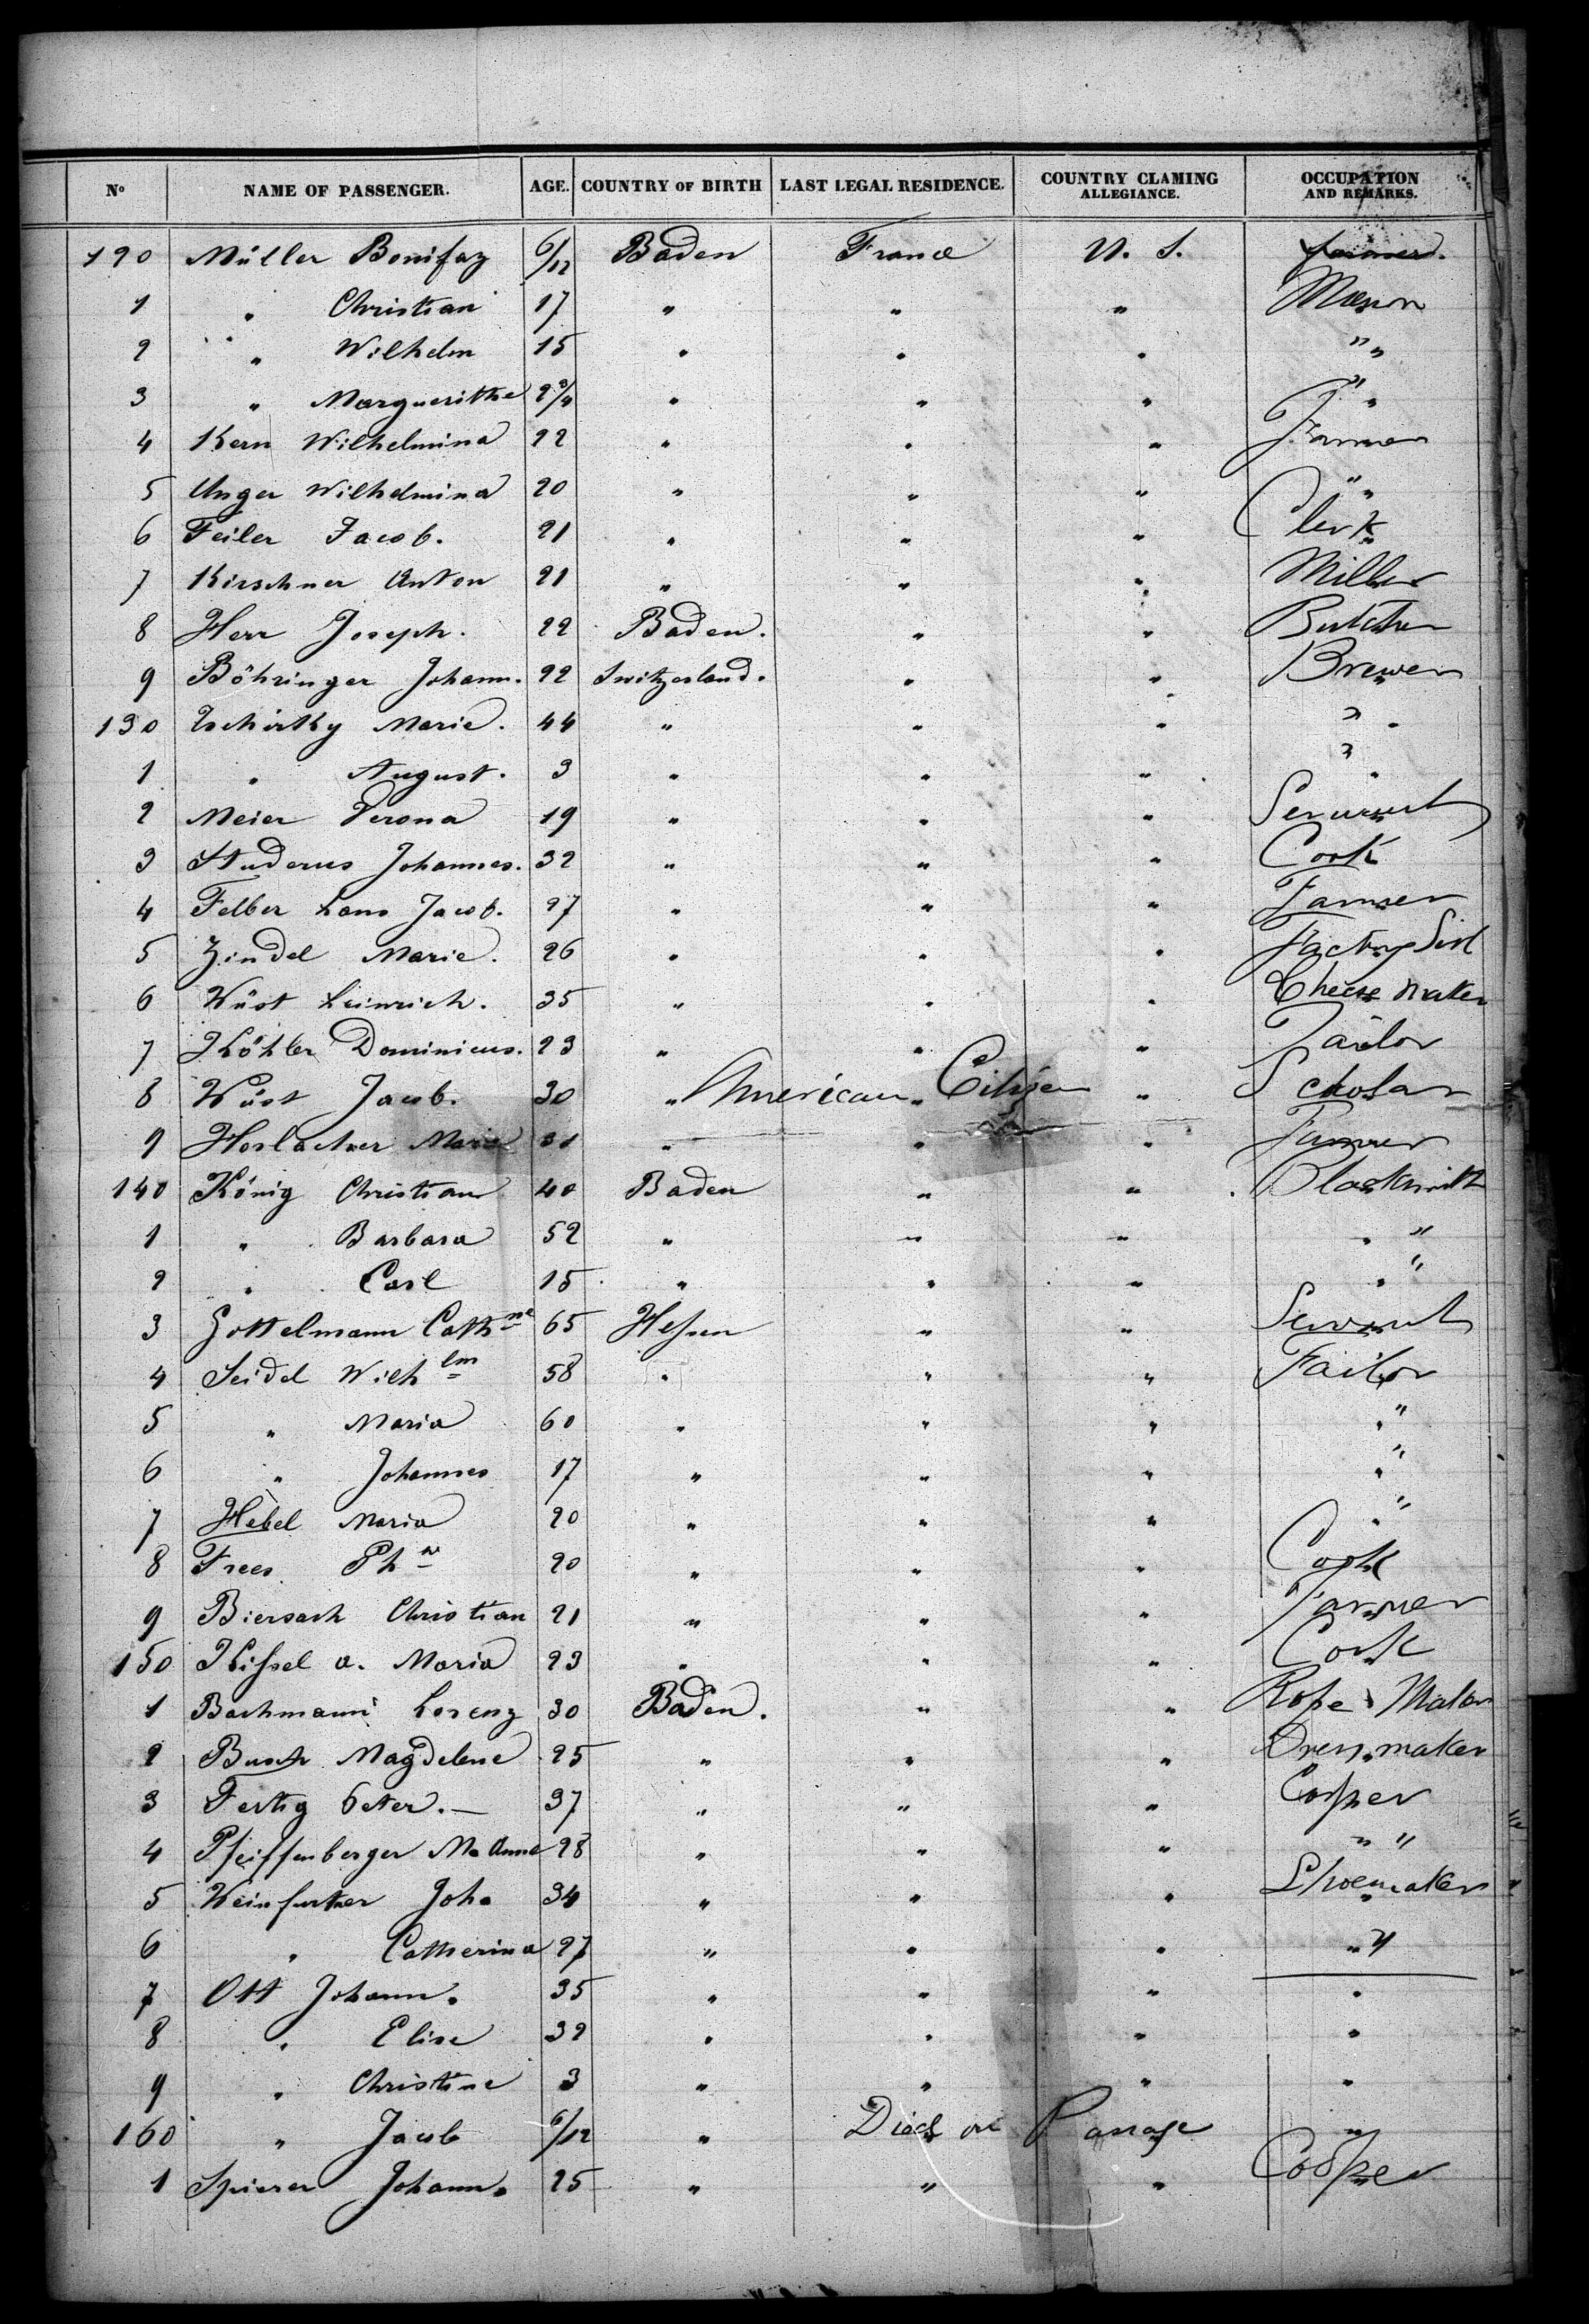 No NAME OF PASSENGER. AGE. COUNTRY OF BIRTH LAST LEGAL RESIDENCE. COUNTRY CLAMING ALLEGIANCE. OCCUPATION AND REMARKS.
120 Müller Bonifaz 6/12 Baden France U. S. farmer.
1 " Christian 17 " " " Mason
2 " Wilhelm 15 " " " " "
3 " Margueritha 2 3/4 " " " " "
4 Kern Wilhelmina 22 " " " Farmer
5 Unger Wilhelmina 20 " " " " "
6 Feiler Jacob. 21 " " " Clerk
7 Kirschner Anton 21 " " " Miller
8 Herr Joseph. 22 Baden. " " Butcher
9 Böhringer Johann. 22 Switzerland. " " Brewer
130 Tschirky Marie. 44 " " " " "
1 " August. 3 " " " " "
2 Meier Verona 19 " " " Servant
3 Studerus Johannes. 32 " " " Cook
4 Felber Hans Jacob. 27 " " " Farmer
5 Zindel Marie. 26 " " " Factory Girl
6 Wüst Heinrich. 35 " " " Cheese Maker
7 Köhler Dominicus. 23 " " " Tailor
8 Wüst Jacob. 30 " American Citizen " Scholar
9 Horlacher Marie 31 " " " Farmer
140 König Christian 40 Baden " " Blacksmith
1 " Barbara 52 " " " " "
2 " Carl 15 " " " " "
3 Gottelmann Cathne 65 Hessen " " Servant
4 Seidel Wilhlm 58 " " " Tailor
5 " Maria 60 " " " " "
6 " Johannes 17 " " " " "
7 Hebel Maria 20 " " " " "
8 Frees 20 " " " Cook
9 Biersach Christian 21 " " " Farmer
150 Kissel a. Maria 23 " " " Cook
1 Bachmann Lorenz 30 Baden. " " Rope Maker
2 Busch Magdelene 25 " " " Dressmaker
3 Fertig Peter. — 37 " " " Cooper
4 Pfeiffenberger M. Anna 28 " " " " "
5 Weinfurter Joh. 34 " " " Shoemaker
6 " Catherina 27 " " " " "
7 Ott Johann. 35 " " " "
8 " Elise 32 " " " "
9 " Christine 3 " " " "
160 " Jacob 6/12 " Died on Passage "
1 Spierer Johann. 25 " " " Cooper